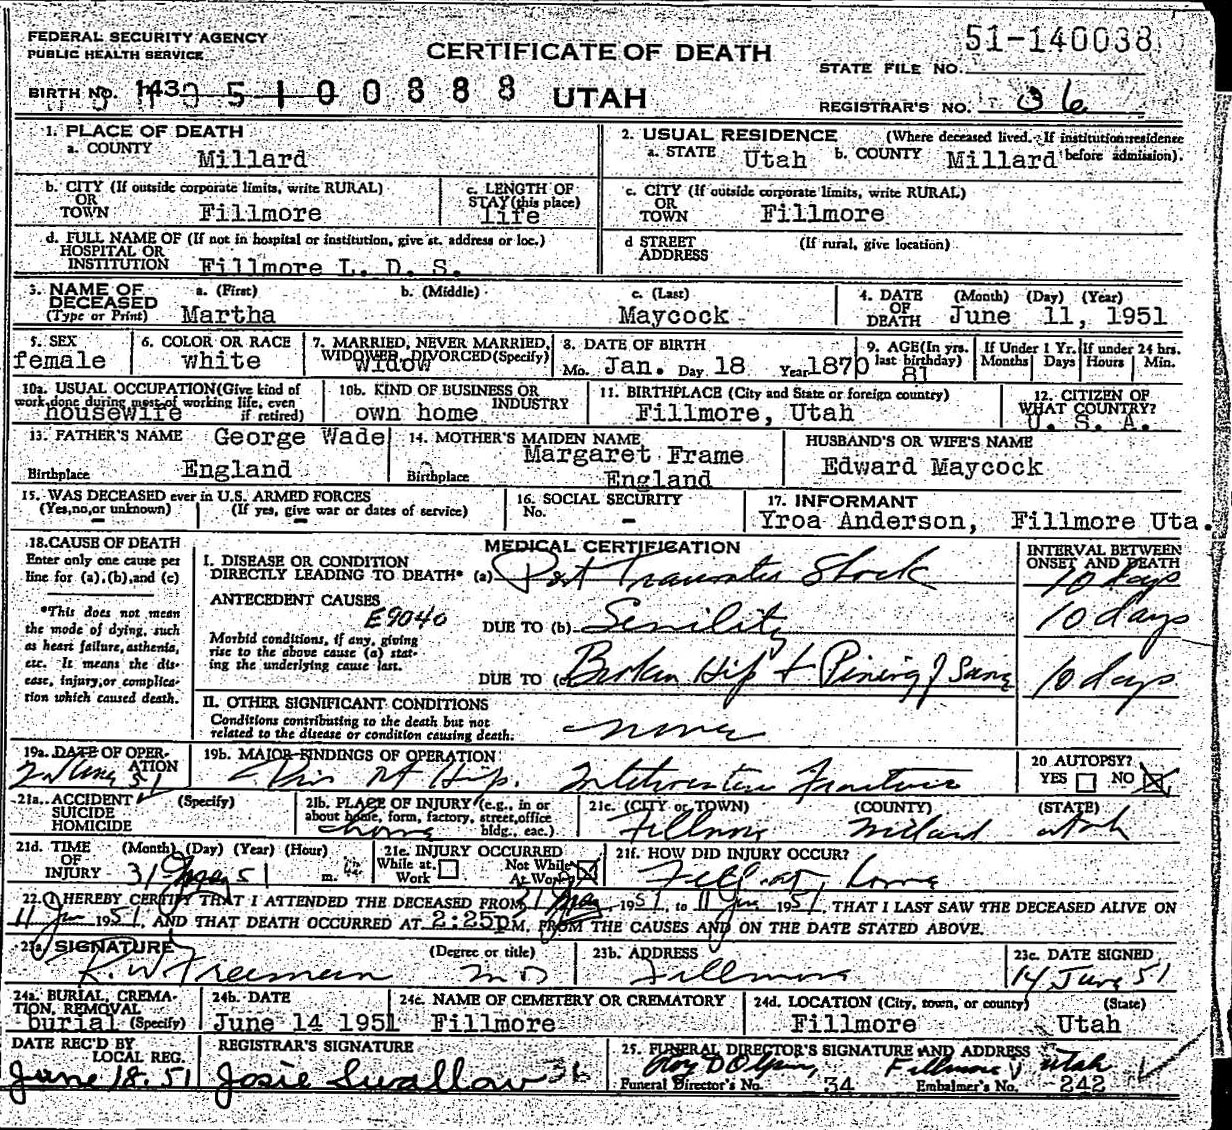 FEDERAL SECURITY AGENCY
PUBLIC HEALTH SERVICE
CERTIFICATE OF DEATH
51-140038
STATE FILE NO.
BIRTH NO. 143 5100888 UTAH
REGISTRAR'S NO. 36
1. PLACE OF DEATH
a. COUNTY Millard
2. USUAL RESIDENCE (Where deceased lived. If institution: residence before admission).
a. STATE Utah b. COUNTY Millard
b. CITY (If outside corporate limits, write RURAL) OR TOWN Fillmore
c. LENGTH OF STAY (this place) life
c. CITY (If outside corporate limits, write RURAL) OR TOWN Fillmore
d. FULL NAME OF (If not in hospital or institution, give st. address or loc.) HOSPITAL OR INSTITUTION Fillmore L. D. S.
d STREET ADDRESS (If rural, give location)
3. NAME OF DECEASED (Type or Print) a. (First) Martha b. (Middle) c. (Last) Maycock
4. DATE OF DEATH (Month) (Day) (Year) June 11, 1951
5. SEX female
6. COLOR OR RACE white
7. MARRIED, NEVER MARRIED, WIDOWER, DIVORCED (Specify) Widow
8. DATE OF BIRTH Mo. Jan. Day 18 Year 1870
9. AGE (In yrs. last birthday) 81
If Under 1 Yr. Months Days
If under 24 hrs. Hours Min.
10a. USUAL OCCUPATION (Give kind of work done during most of working life, even if retired) housewife
10b. KIND OF BUSINESS OR INDUSTRY own home
11. BIRTHPLACE (City and State or foreign country) Fillmore, Utah
12. CITIZEN OF WHAT COUNTRY? U. S. A.
13. FATHER'S NAME George Wade
Birthplace England
14. MOTHER'S MAIDEN NAME Margaret Frame
Birthplace England
HUSBAND'S OR WIFE'S NAME
Edward Maycock
15. WAS DECEASED ever in U.S. ARMED FORCES
(Yes, no, or unknown) - (If yes, give war or dates of service) -
16. SOCIAL SECURITY No. -
17. INFORMANT
Yroa Anderson, Fillmore Uta.
18. CAUSE OF DEATH
Enter only one cause per line for (a), (b), and (c)
*This does not mean the mode of dying, such as heart failure, asthenia, etc. It means the disease, injury, or complication which caused death.
MEDICAL CERTIFICATION
I. DISEASE OR CONDITION DIRECTLY LEADING TO DEATH* (a) Post Traumatic Shock
INTERVAL BETWEEN ONSET AND DEATH
10 days
ANTECEDENT CAUSES E9040
Morbid conditions, if any, giving rise to the above cause (a) stating the underlying cause last.
DUE TO (b) Senility 10 days
DUE TO (c) Broken Hip + Pining of Same 10 days
II. OTHER SIGNIFICANT CONDITIONS
Conditions contributing to the death but not related to the disease or condition causing death. none
19a. DATE OF OPERATION 51
19b. MAJOR FINDINGS OF OPERATION Hip. Fracture
20 AUTOPSY? YES NO X
21a. ACCIDENT SUICIDE HOMICIDE (Specify)
21b. PLACE OF INJURY (e.g., in or about home, form, factory, street, office bldg., eac.) home
21c. (CITY or TOWN) Fillmore (COUNTY) Millard (STATE) Utah
21d. TIME OF INJURY (Month) (Day) (Year) (Hour) m. 31 May 51
21e. INJURY OCCURRED While at Work Not While At Work X
21f. HOW DID INJURY OCCUR? Fell at home
22. I HEREBY CERTIFY THAT I ATTENDED THE DECEASED FROM 31 May 1951, to 11 Jun 1951, THAT I LAST SAW THE DECEASED ALIVE ON
11 Jun 1951, AND THAT DEATH OCCURRED AT 2:25p M, FROM THE CAUSES AND ON THE DATE STATED ABOVE.
23a. SIGNATURE R. W. Freeman (Degree or title) M D
23b. ADDRESS Fillmore
23c. DATE SIGNED 14 June 51
24a. BURIAL, CREMATION, REMOVAL (Specify) burial
24b. DATE June 14 1951
24c. NAME OF CEMETERY OR CREMATORY Fillmore
24d. LOCATION (City, town, or county) (State) Fillmore Utah
DATE REC'D BY LOCAL REG. June 18. 51
REGISTRAR'S SIGNATURE Josie Swallow 36
25. FUNERAL DIRECTOR'S SIGNATURE AND ADDRESS Fillmore Utah
Funeral Director's No. 34 Embalmer's No. 242